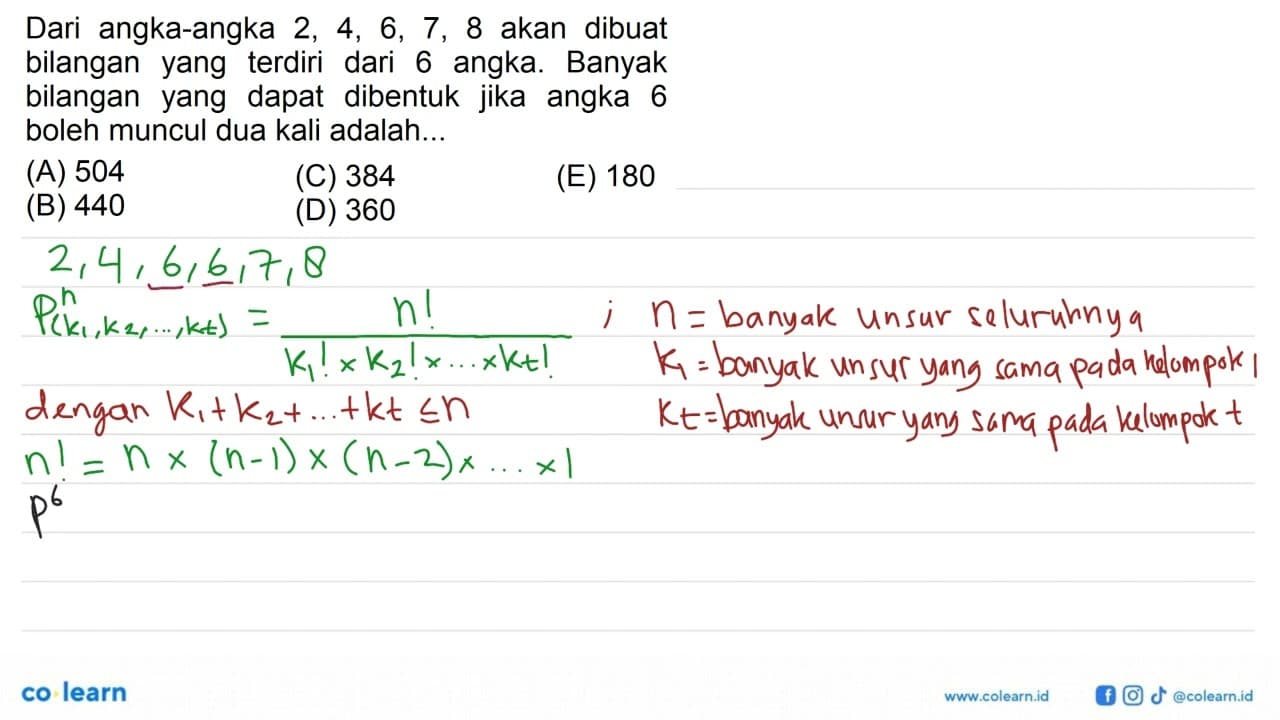 Dari angka-angka 2, 4, 6, 7, 8 akan dibuat
bilangan yang terdiri dari 6 angka. Banyak
bilangan yang dapat dibentuk jika angka 6
boleh muncul dua kali adalah...
(A) 504 (C) 384 (E) 180
(B) 440 (D) 360
2, 4, 6, 6, 7, 8
P^n_(k₁, k₂, ..., kt) = n! / k₁! × k₂! × ... × kt! ; n = banyak unsur seluruhnya
k₁ = banyak unsur yang sama pada kelompok 1
dengan k₁ + k₂ + ... + kt ≤ n kt = banyak unsur yang sama pada kelompok t
n! = n × (n-1) × (n-2) × ... × 1
p⁶
co learn www.colearn.id @colearn.id